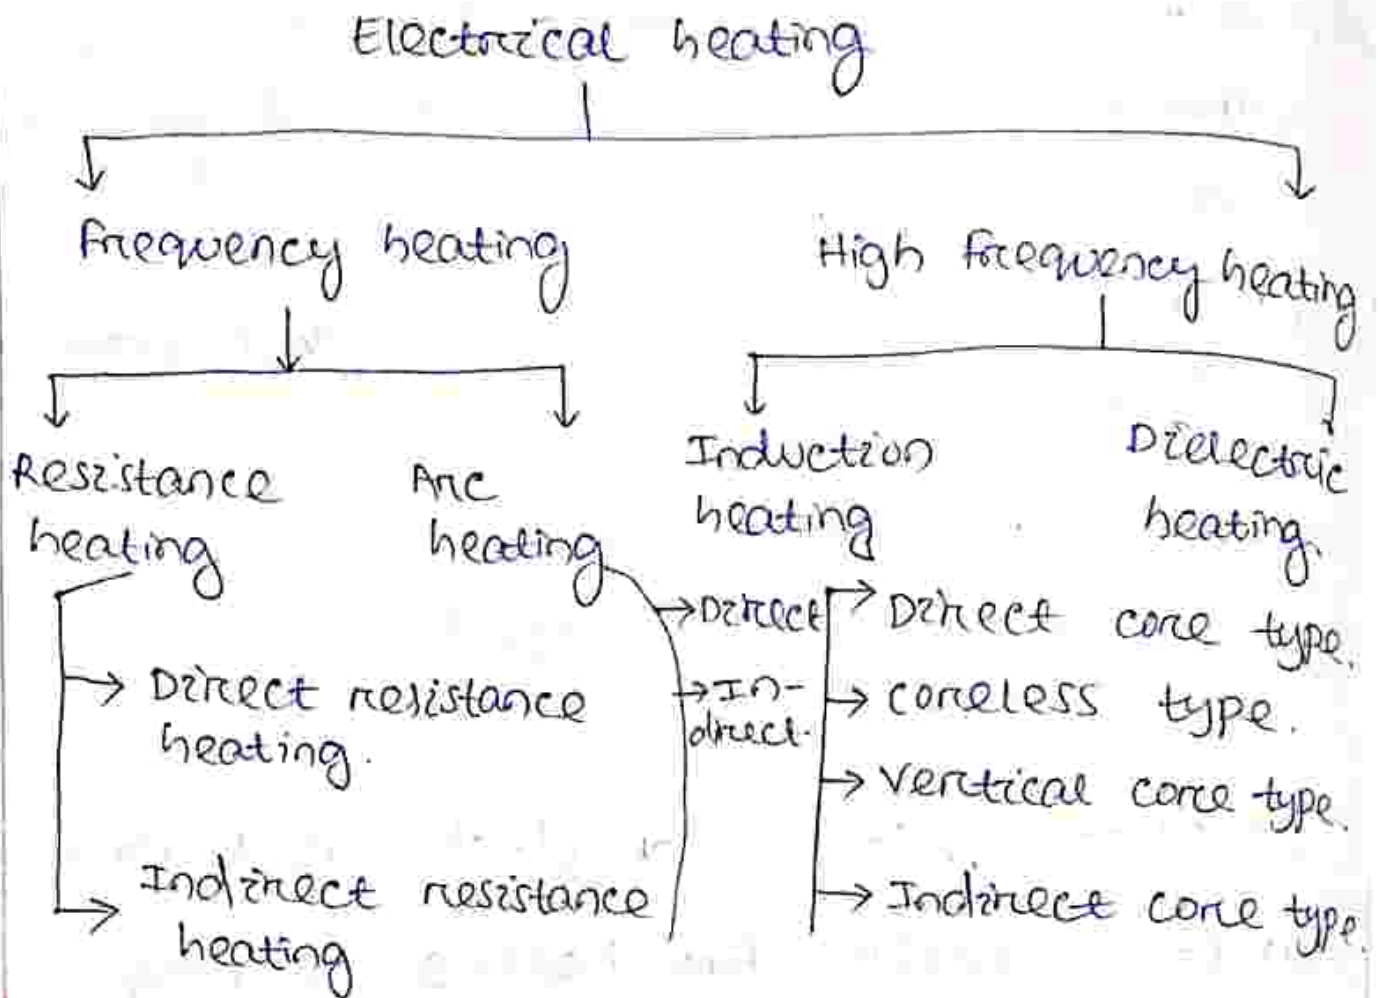 Electrical heating
Frequency heating
High frequency heating
Resistance
heating
Arc
heating
Induction
heating
Dielectric
heating.
Direct resistance
heating.
Indirect resistance
heating
Direct
In-
direct.
Direct core type.
coreless type.
Vertical core type.
Indirect core type.